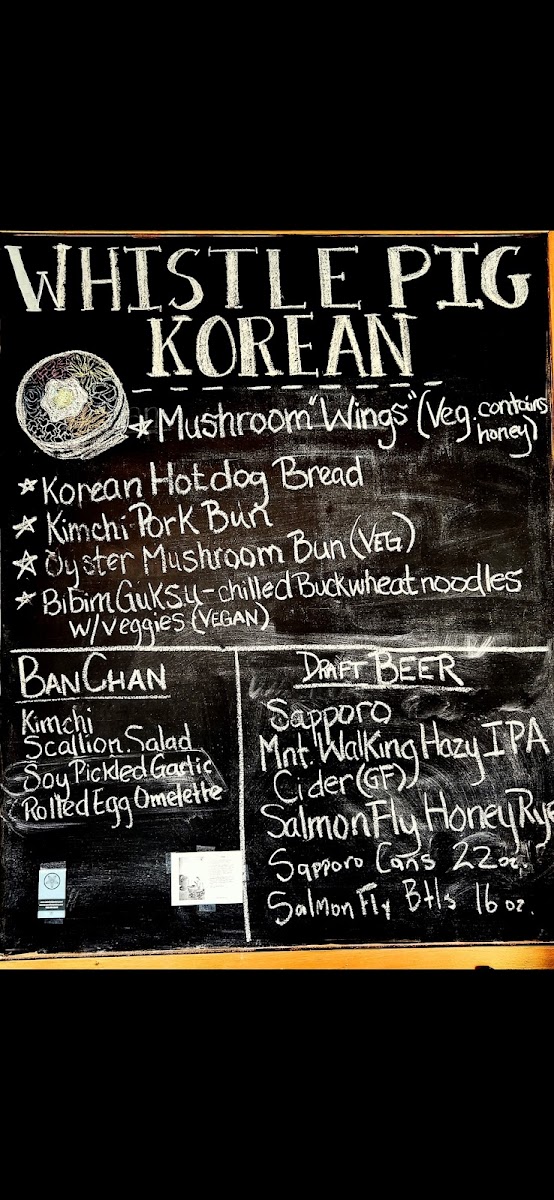 WHISTLE PIG
KOREAN
Mushroom "Wings" (Veg. contains
honey)
Korean Hotdog Bread
Kimchi Pork Bun
Oyster Mushroom Bun (VEG)
BiBim GuKsu - chilled Buckwheat noodles
w/veggies (VEGAN)
BANCHAN
Kimchi
Scallion Salad
Soy Pickled Garlic
Rolled Egg Omelette
DRAFT BEER
Sapporo
Mnt. Walking Hazy IPA
Cider (GF)
Salmon Fly Honey Rye
Sapporo Cans 22oz.
Salmon Fly Btls 16 oz.